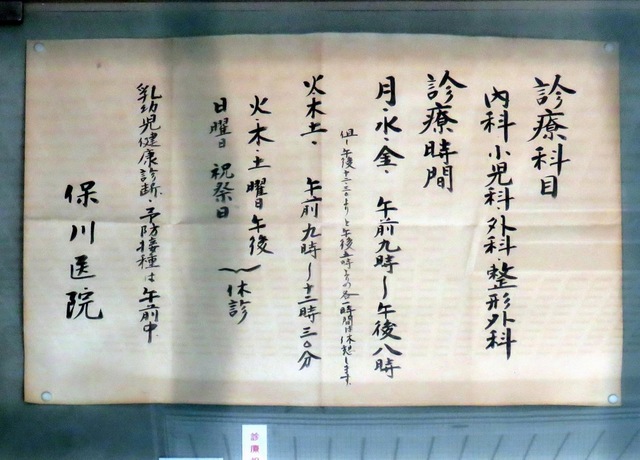 診療科目
内科 小児科・外科・整形外科
診療時間
月・水・金・ 午前九時～午後八時
但し午後十二、三〇より午後五時までの各一時間は休憩します。
火・木・土・ 午前九時～十二時三〇分
火・木・土曜日午後
日曜日 祝祭日
休診
乳幼児健康診断・予防接種は午前中
保川医院
診療